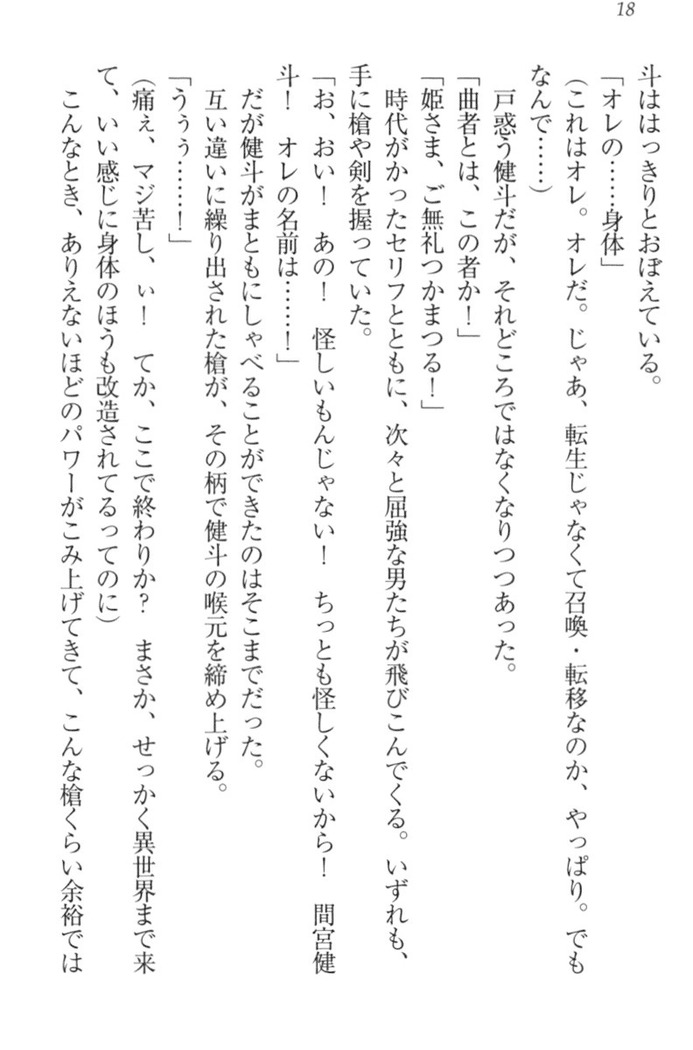 18
斗ははっきりとおぼえている。
「オレの……身体」
（これはオレ。オレだ。じゃあ、転生じゃなくて召喚・転移なのか、やっぱり。でも
なんで……）
戸惑う健斗だが、それどころではなくなりつつあった。
「曲者とは、この者か！」
「姫さま、ご無礼つかまつる！」
時代がかったセリフとともに、次々と屈強な男たちが飛びこんでくる。いずれも、
手に槍や剣を握っていた。
「お、おい！　あの！　怪しいもんじゃない！　ちっとも怪しくないから！　間宮健
斗！　オレの名前は……！」
だが健斗がまともにしゃべることができたのはそこまでだった。
互い違いに繰り出された槍が、その柄で健斗の喉元を締め上げる。
「うぅぅ……！」
（痛ぇ、マジ苦し、ぃ！　てか、ここで終わりか？　まさか、せっかく異世界まで来
て、いい感じに身体のほうも改造されてるってのに）
こんなとき、ありえないほどのパワーがこみ上げてきて、こんな槍くらい余裕では